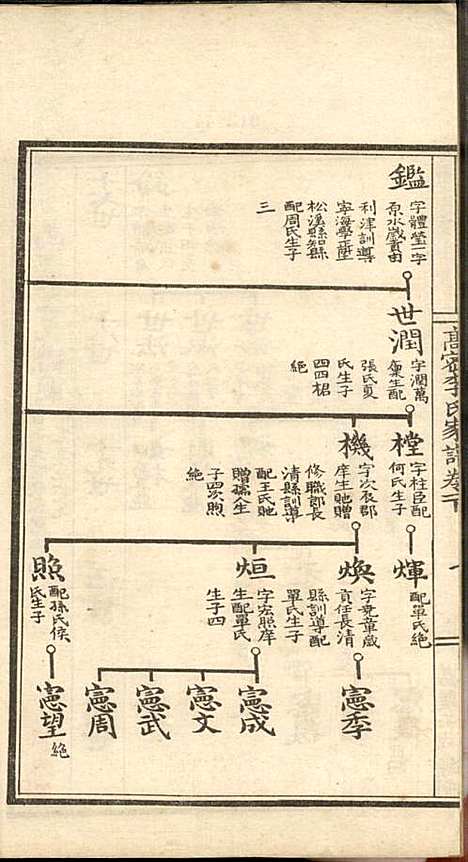 高密李氏家譜卷下
鑑
字體瑩一字
泵水歲貢由
利津訓導
寧海學正陞
松溪縣知縣
配周氏生子
三
世潤
字潤萬
廩生配
張氏夏
氏生子
四四桾
絕
樘
字柱臣配
何氏生子
機
字次辰郡
庠生貤贈
修職郎長
清縣訓導
配王氏貤
贈孺人生
子四次煦
絕
煇
配單氏絕
煥
字堯章歲
貢任長清
縣訓導配
單氏生子
烜
字宏照庠
生配單氏
生子四
照
配孫氏侯
氏生子
憲季
憲成
憲文
憲武
憲周
憲望
絕